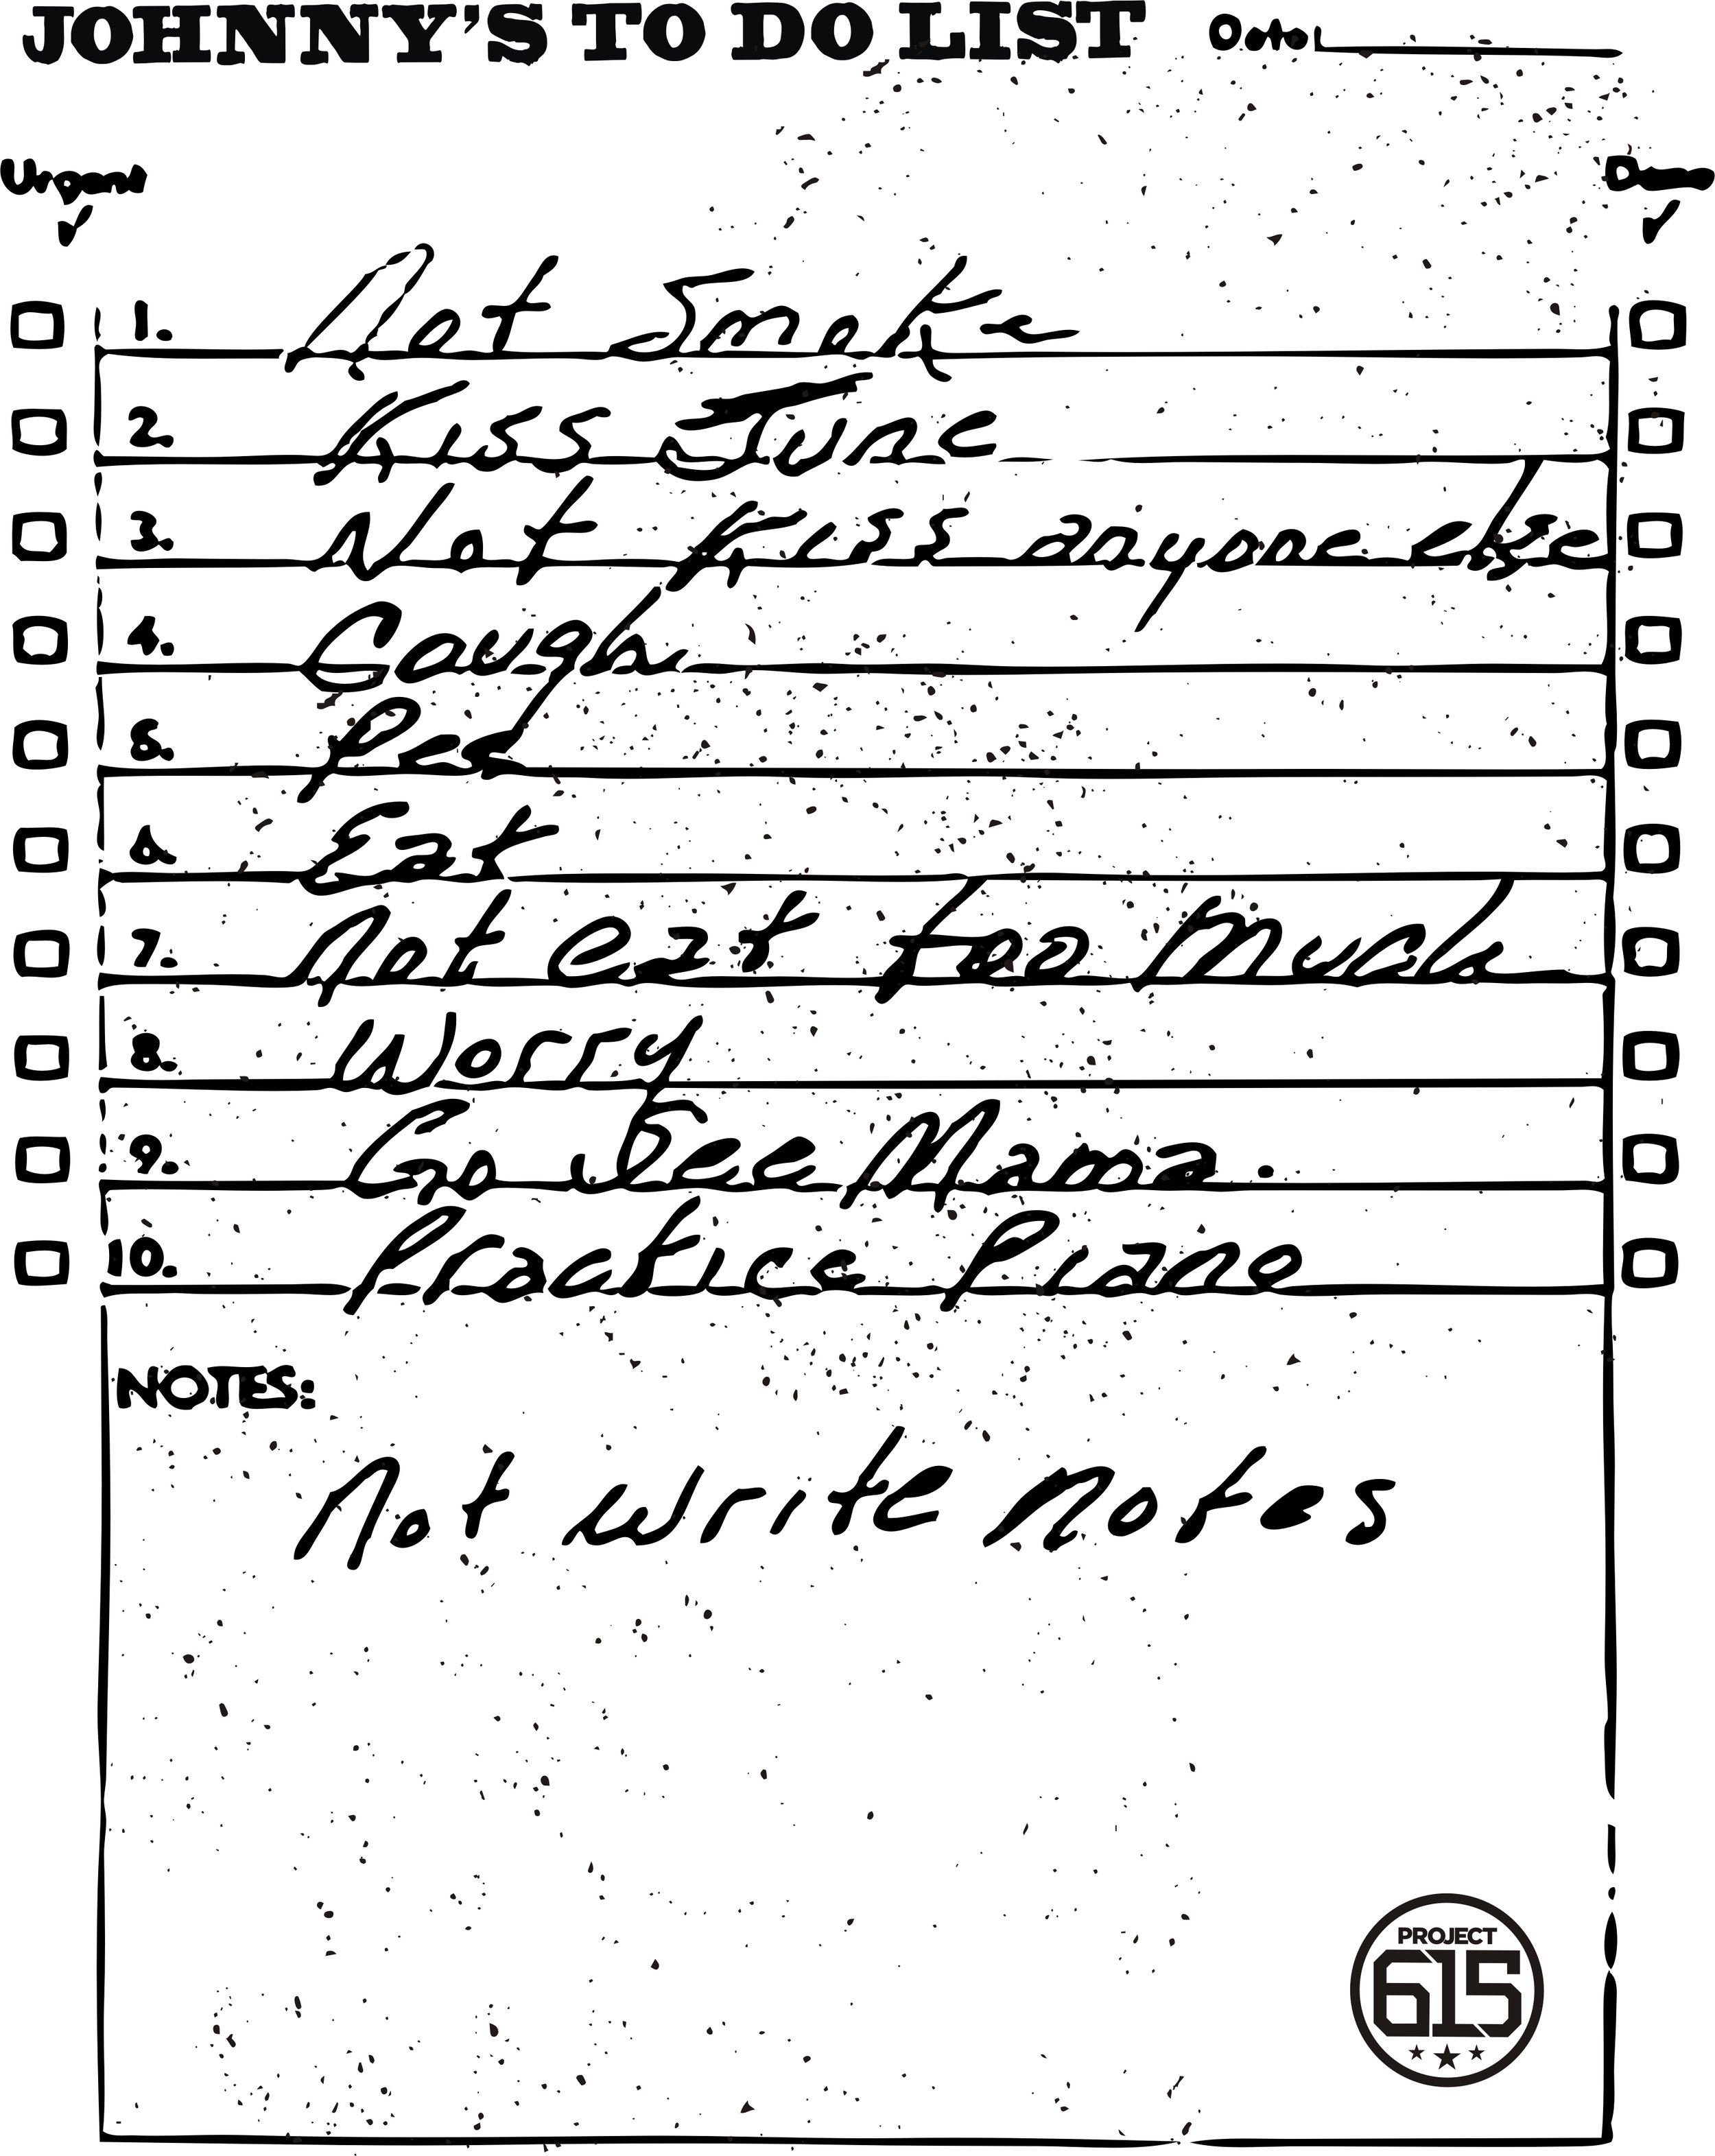 JOHNNY'S TO DO LIST Date
Urgent Done
1. Not Smoke
2. Kiss June
3. Not Kiss anyone else
4. Cough
5. Pee
6. Eat
7. Not eat too much
8. Worry
9. Go See Mama.
10. Practice Piano
NOTES:
Not write notes
PROJECT
615